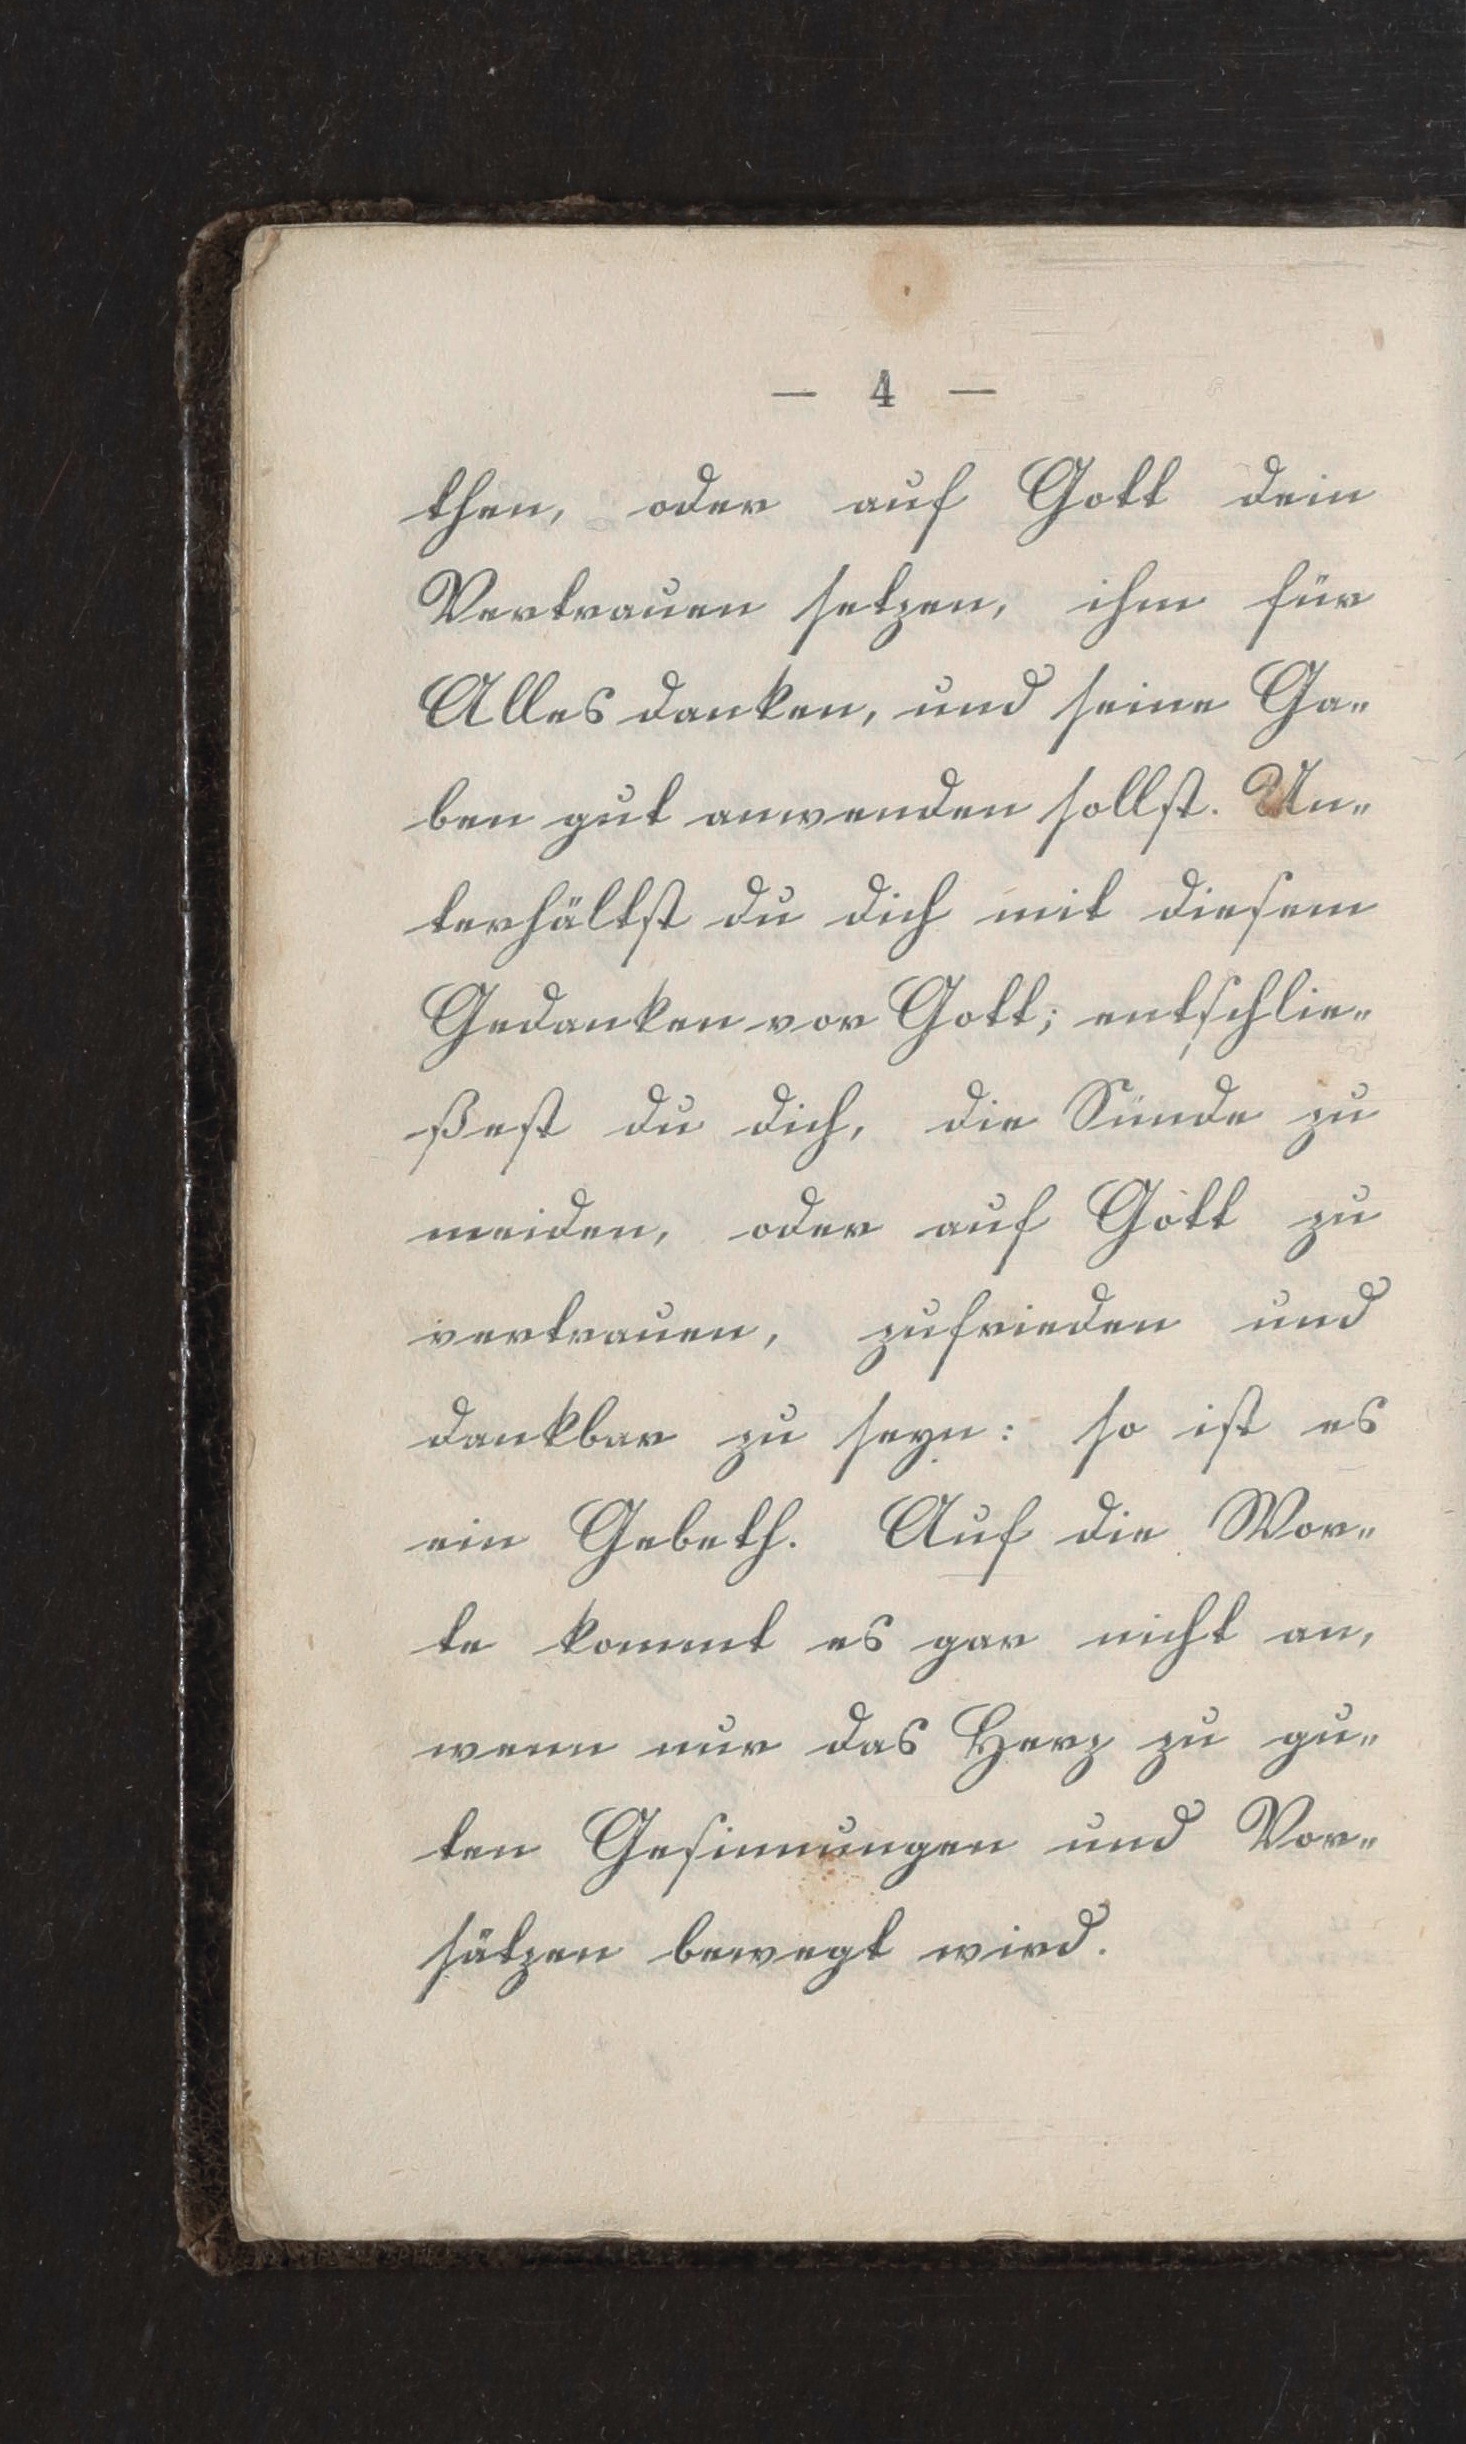 — 4 —
then, oder auf Gott dein
Vertrauen setzen, ihm für
Alles danken, und seine Ga„
ben gut anwenden sollst. Un„
terhältst du dich mit diesem
Gedanken vor Gott; entschlie„
ßest du dich, die Sünde zu
meiden, oder auf Gott zu
vertrauen, zufrieden und
dankbar zu seyn: so ist es
ein Gebeth. Auf die Wor„
te kommt es gar nicht an,
wenn nur das Herz zu gu„
ten Gesinnungen und Vor„
sätzen bewegt wird.